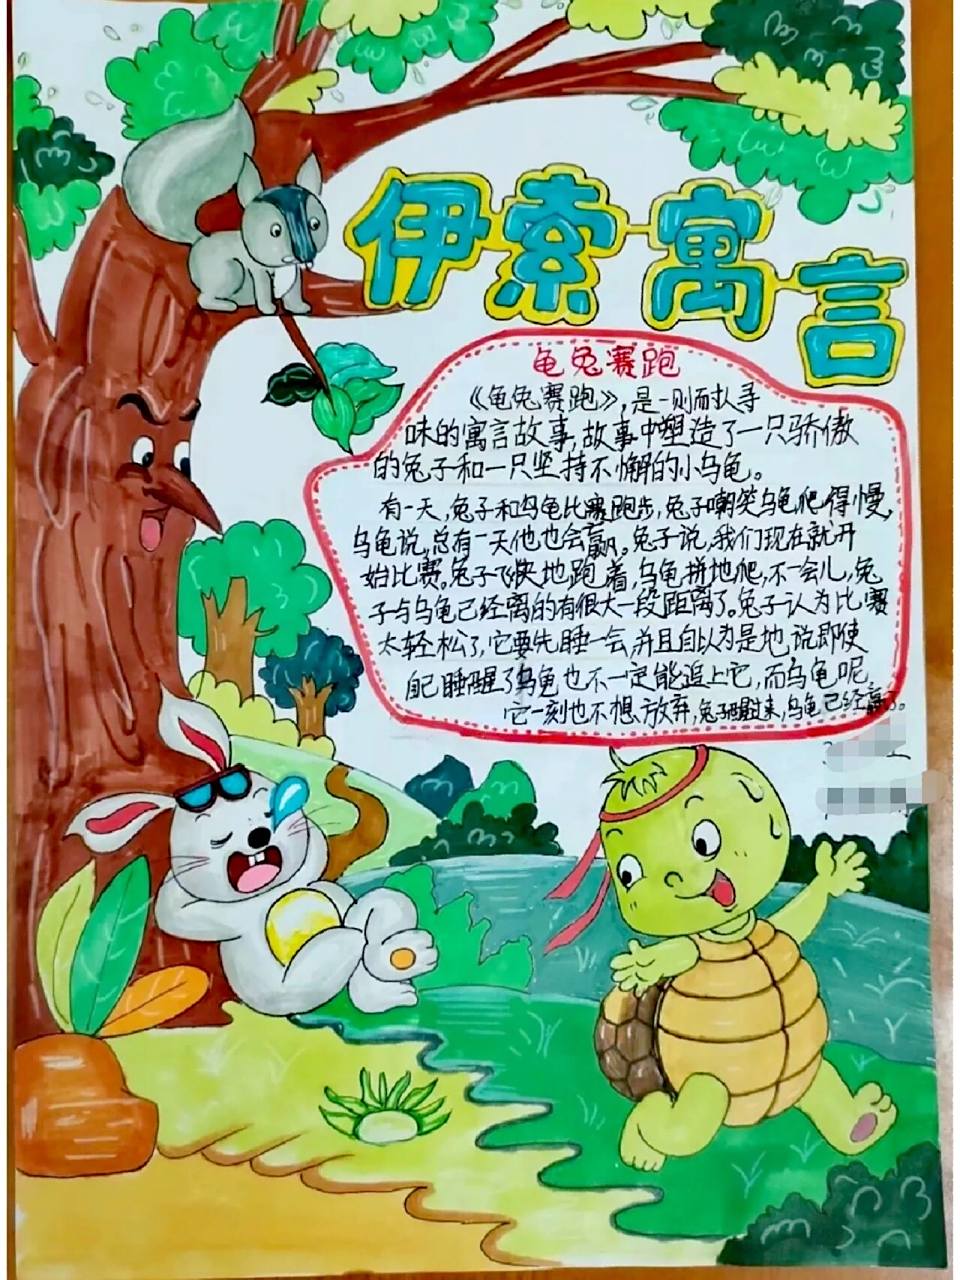 伊索寓言
龟兔赛跑
《龟兔赛跑》，是一则耐人寻
味的寓言故事，故事中塑造了一只骄傲
的兔子和一只坚持不懈的小乌龟。
有一天，兔子和乌龟比赛跑步，兔子嘲笑乌龟爬得慢，
乌龟说，总有一天他也会赢。兔子说，我们现在就开
始比赛。兔子飞快地跑着，乌龟拼地爬，不一会儿，兔
子与乌龟已经离的有很大一段距离了。兔子认为比赛
太轻松了，它要先睡一会，并且自以为是地说即使
自己睡醒了乌龟也不一定能追上它，而乌龟呢，
它一刻也不想放弃，兔子醒过来，乌龟已经赢了。